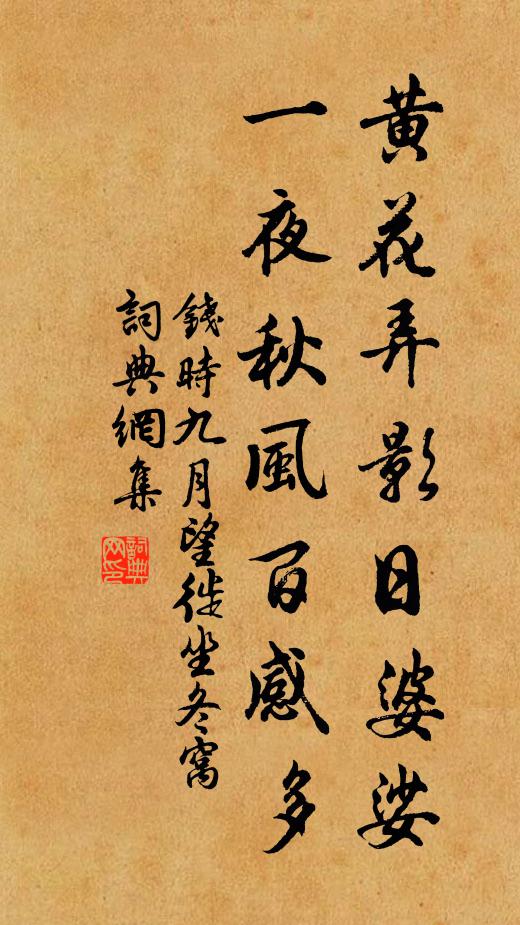 黃花弄影日婆娑
一夜秋風百感多
錢時九月望徙坐冬窩
詞典網集
詞典
網印